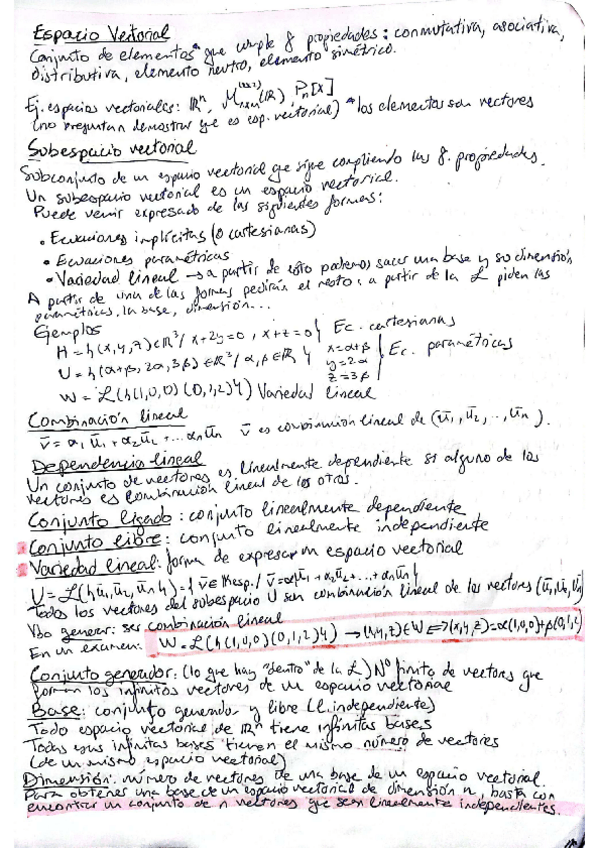 Espacio Vectorial
Conjunto de elementos* que cumple 8 propiedades: conmutativa, asociativa,
distributiva, elemento neutro, elemento simétrico.
Ej. espacios vectoriales: ℝⁿ, M (ℝ) Pn[x]
(no preguntan demostrar que es esp. vectorial) * los elementos son vectores
Subespacio vectorial
Subconjunto de un espacio vectorial que sigue cumpliendo las 8 propiedades.
Un subespacio vectorial es un espacio vectorial.
Puede venir expresado de las siguientes formas:
• Ecuaciones implícitas (o cartesianas)
• Ecuaciones paramétricas
• Variedad lineal → a partir de esto podemos sacar una base y su dimensión
A partir de una de las formas pedirán el resto: a partir de la ℒ piden las
paramétricas, la base, dimensión...
Ejemplos
H = {(x,y,z)∈ℝ³/ x+2y=0, x+z=0} Ec. cartesianas
U = {(α+β, 2α, 3β)∈ℝ³/ α,β∈ℝ} x=α+β y=2α z=3β } Ec. paramétricas
W = ℒ({(1,0,0) (0,1,2)}) Variedad lineal
Combinación lineal
v̄ = α₁ū₁+α₂ū₂+...αnūn v̄ es combinación lineal de (ū₁, ū₂, .., ūn).
Dependencia lineal
Un conjunto de vectores es linealmente dependiente si alguno de los
vectores es combinación lineal de los otros.
Conjunto ligado: conjunto linealmente dependiente
Conjunto libre: conjunto linealmente independiente
Variedad lineal: forma de expresar un espacio vectorial
U = ℒ({ū₁, ū₂, ūn}) = { v̄ ∈ / v̄=αū₁+α₂ū₂+...+αnūn}
Todos los vectores del subespacio U son combinación lineal de los vectores (ū₁, ū₂, ūn)
generar: ser combinación lineal
En un examen: W = ℒ({(1,0,0)(0,1,2)}) → (x,y,z)∈W ⟺ (x,y,z)=α(1,0,0)+β(0,1,2)
Conjunto generador: (lo que hay "dentro" de la ℒ) Nº finito de vectores que
forman los infinitos vectores de un espacio vectorial
Base: conjunto generador y libre (l. independiente)
Todo espacio vectorial de ℝⁿ tiene infinitas bases
Todas sus infinitas bases tienen el mismo número de vectores
(de un mismo espacio vectorial)
Dimensión: número de vectores de una base de un espacio vectorial.
Para obtener una base de un espacio vectorial de dimensión n, basta con
encontrar un conjunto de n vectores que sean linealmente independientes.